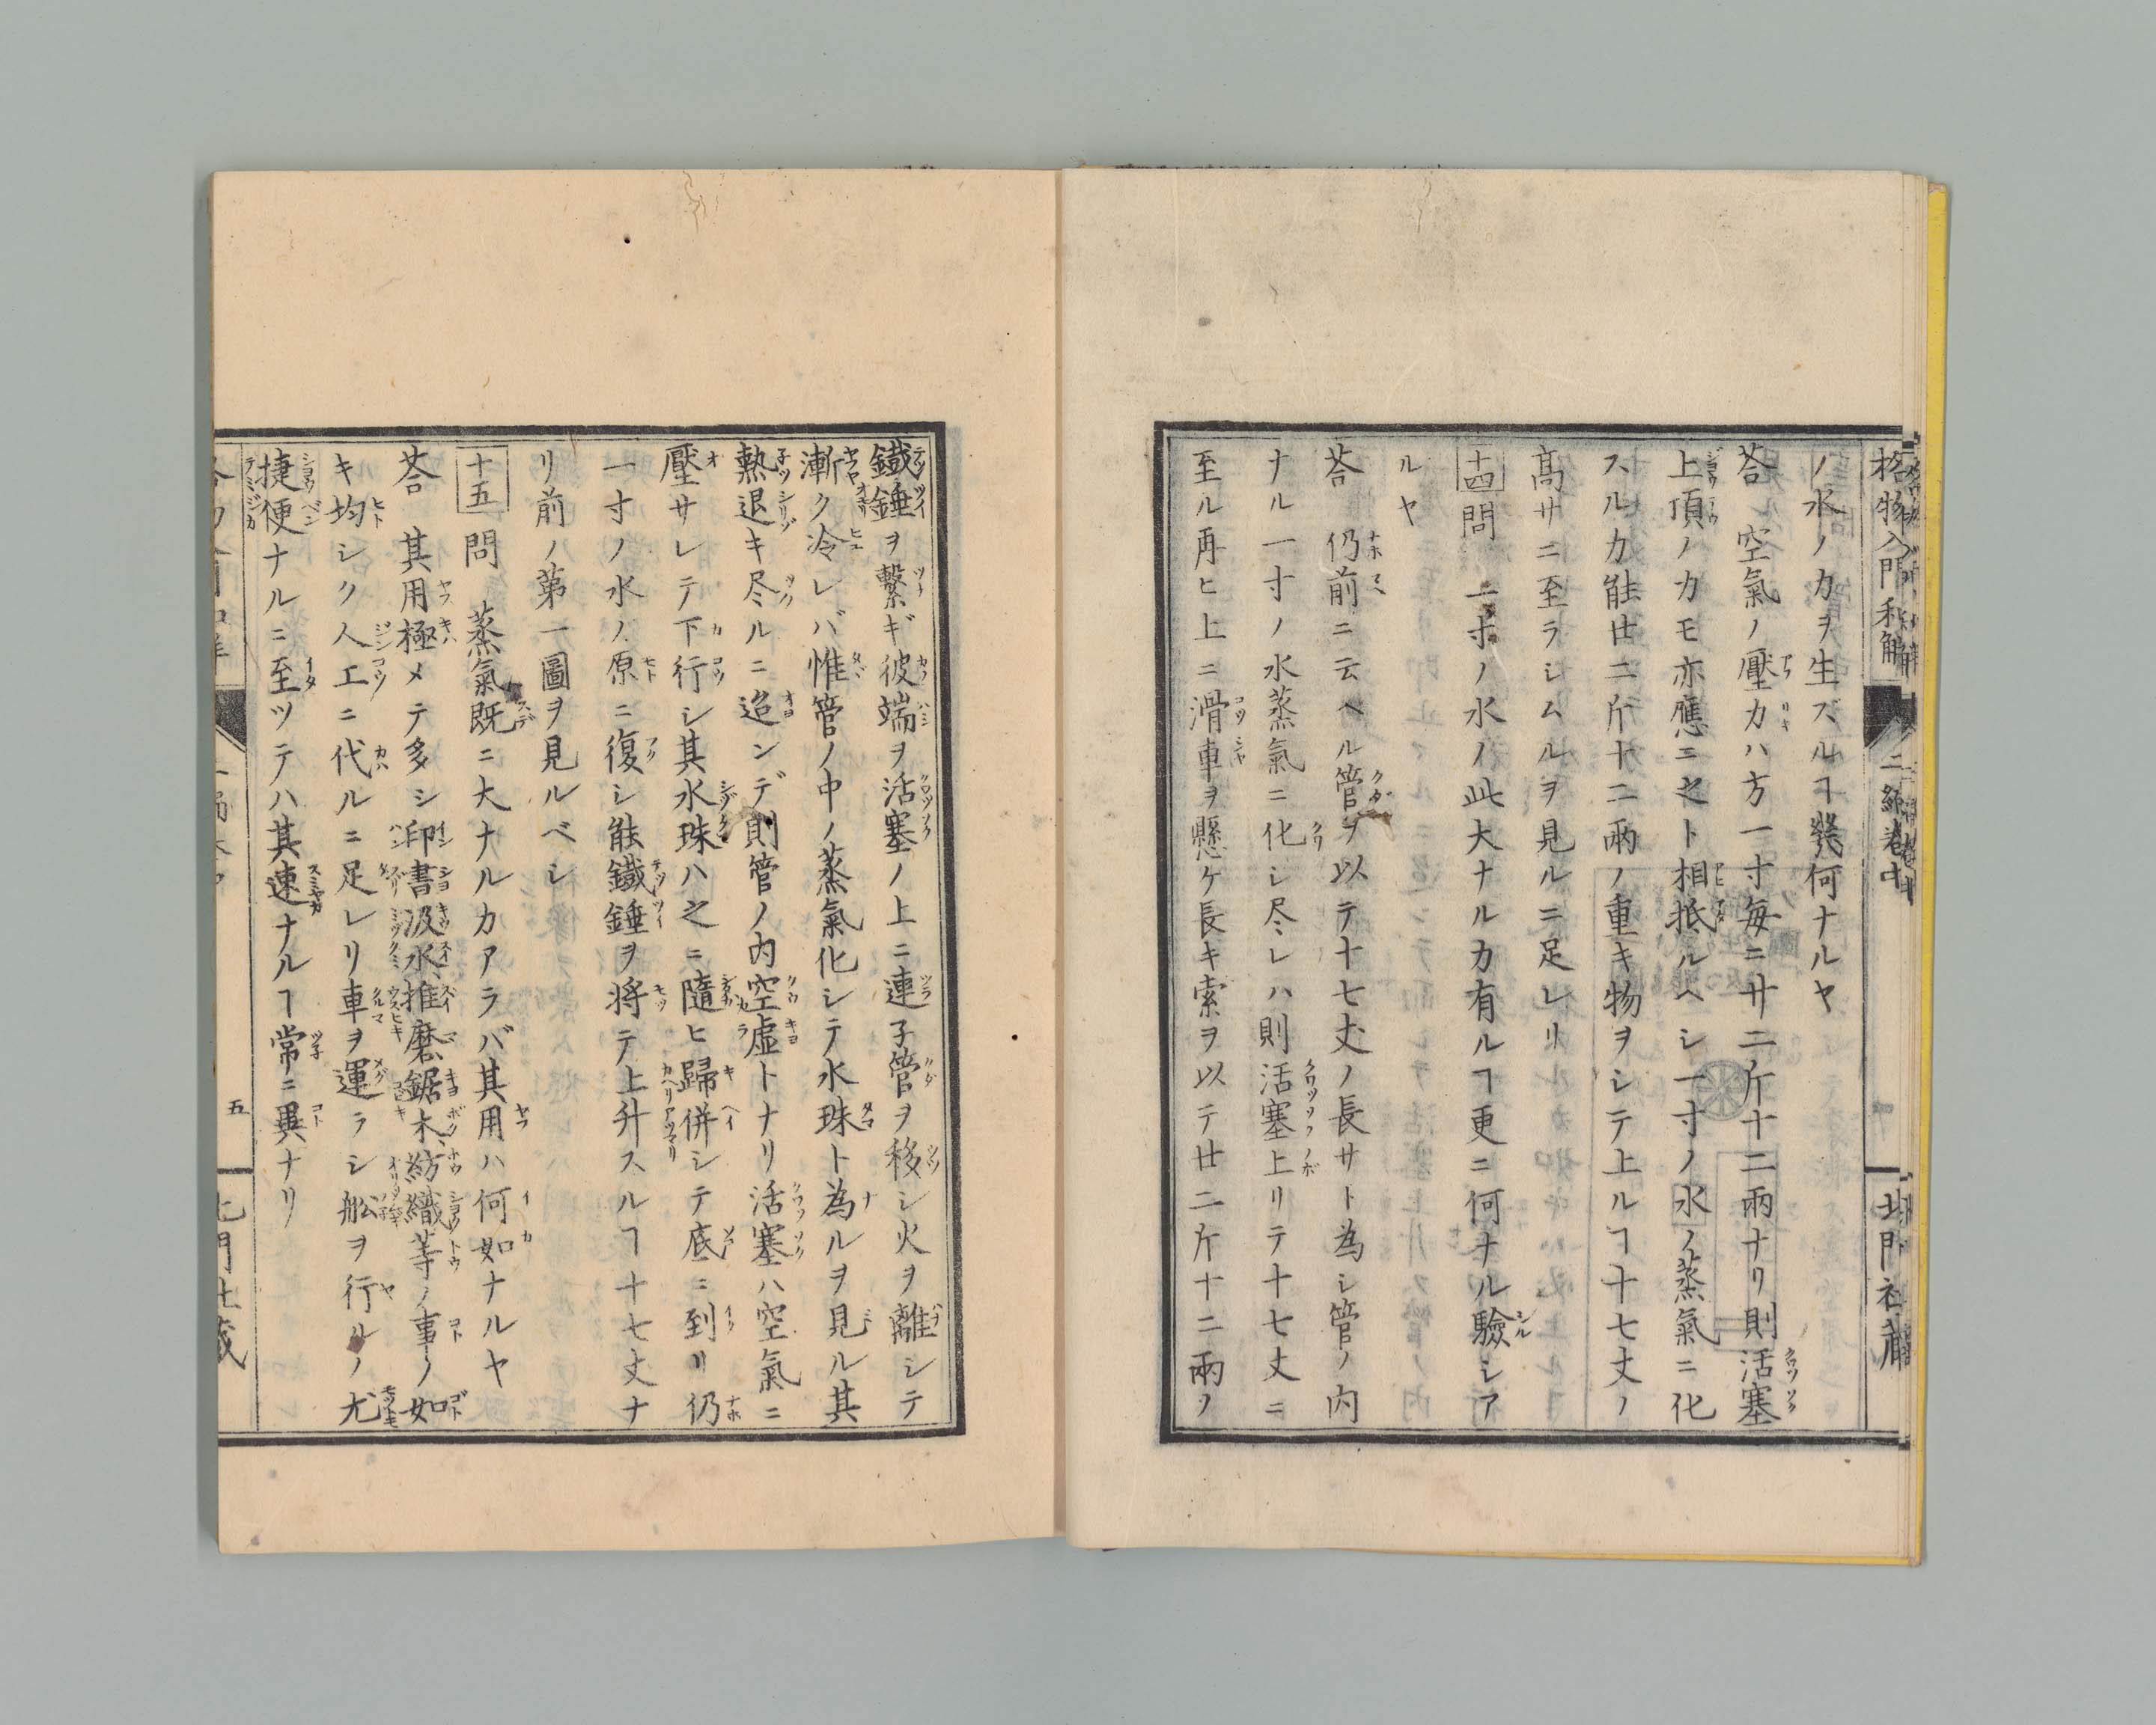 格物入門和解
二編卷中
北門社藏
ノ水ノ力ヲ生ズルヿ幾何ナルヤ
荅　空氣ノ壓力ハ方一寸毎ニ廿二斤十二兩ナリ則活塞
上頂ノ力モ亦應ニ之ト相抵ルヘシ一寸ノ水ノ蒸氣ニ化
スル力能廿二斤十二兩ノ重キ物ヲシテ上ルヿ十七丈ノ
髙サニ至ラシムルヲ見ルニ足レリ
十四問　一寸ノ水ノ此大ナル力有ルヿ更ニ何ナル驗シア
ルヤ
荅　仍前ニ云ヘル管ヲ以テ十七丈ノ長サト為シ管ノ内
ナル一寸ノ水蒸氣ニ化シ尽レハ則活塞上リテ十七丈ニ
至ル再ヒ上ニ滑車ヲ懸ケ長キ索ヲ以テ廿二斤十二兩ノ
鐵錘ヲ繋ギ彼端ヲ活塞ノ上ニ連子管ヲ移シ火ヲ離シテ
漸ク冷レバ惟管ノ中ノ蒸氣化シテ水珠ト為ルヲ見ル其
熱退キ尽ルニ迨ンデ則管ノ内空虚トナリ活塞ハ空氣ニ
壓サレテ下行シ其水珠ハ之ニ隨ヒ歸併シテ底ニ到リ仍
一寸ノ水ノ原ニ復シ能鐵錘ヲ將テ上升スルヿ十七丈ナ
リ前ノ第一圖ヲ見ルベシ
十五問　蒸氣既ニ大ナル力アラバ其用ハ何如ナルヤ
荅　其用極メテ多シ印書汲水推磨鋸木紡織等ノ事ノ如
キ均シク人工ニ代ルニ足レリ車ヲ運ラシ舩ヲ行ルノ尤
捷便ナルニ至ツテハ其速ナルヿ常ニ異ナリ
五
北門社藏